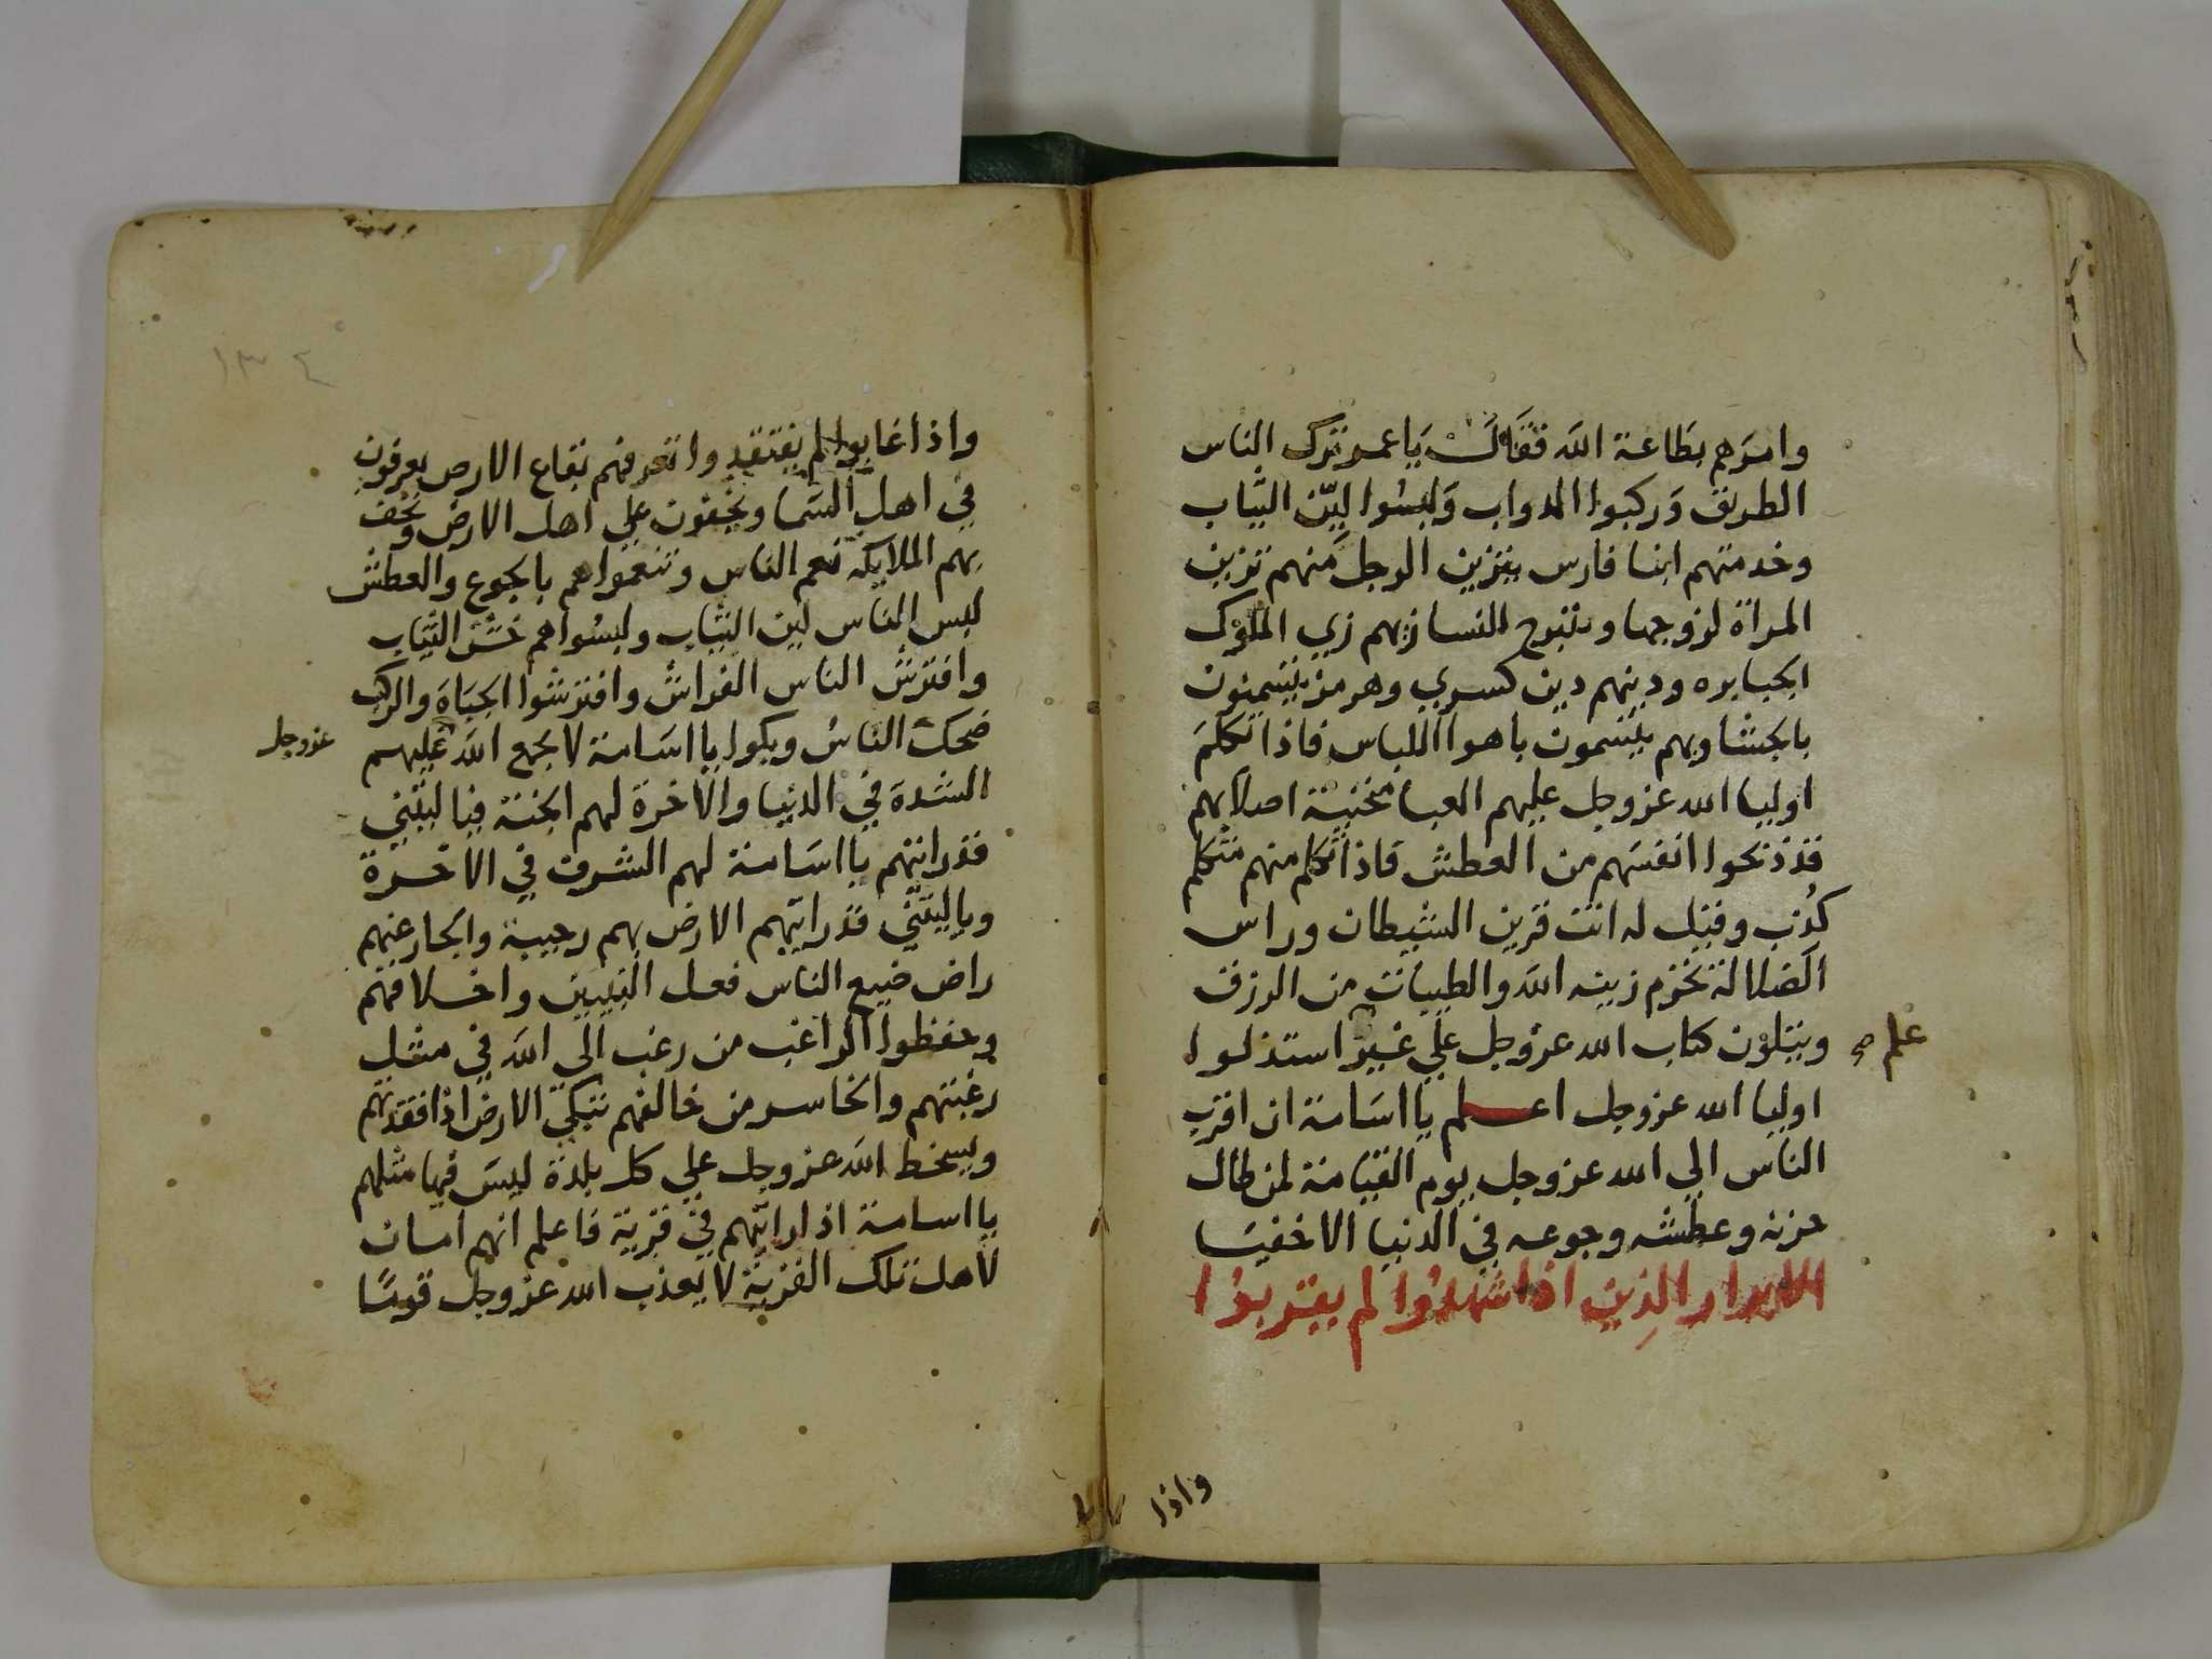 وامرهم بطاعة الله فقال يا عمر تترك الناس
الطريق وركبوا الدواب ولبسوا ليّن الثياب
وخدمتهم ابنا فارس يتزين الرجل منهم تزين
المراة لزوجها وتتبرج النسا زيهم زي الملوك
الجبابره ودينهم دين كسري وهرمز يتسمنون
بالجشا وبهم يلتسمون باهوا اللباس فاذا تكلم
اوليا الله عز وجل عليهم العبا منحنية اصلابهم
قد ذبحوا انفسهم من العطش فاذا تكلم منهم متكلم
كُذب وقيل له انت قرين الشيطان وراس
الضلالة تحرم زينه الله والطيبات من الرزق
ويتلون كتاب الله عز وجل علي غير استذلوا
علم صح
اوليا الله عز وجل اعلم يا اسامة ان اقرب
الناس الي الله عز وجل يوم القيامة لمن طال
حزنه وعطشه وجوعه في الدنيا الاخفيا
الابرار الذين اذا شهدوا لم يقربوا
واذا
١٣٤
واذا غابوا لم يفتقدوا تعرفهم بقاع الارض يعرفون
في اهل السما ويخفون علي اهل الارض وتحف
بهم الملايكه تنعم الناس وتنعموا هم بالجوع والعطش
لبس الناس لين الثياب ولبسوا هم خشن الثياب
وافترش الناس الفراش وافترشوا الجباه والركب
ضحك الناس وبكوا يا اسامة لا يجمع الله عليهم
عز وجل
الشدة في الدنيا والاخرة لهم الجنة فيا ليتني
قد رايتهم يا اسامة لهم الشرف في الاخرة
ويا ليتني قد رايتهم الارض بهم رحيبة والجار عنهم
راض ضيع الناس فعل النبيين واخلاقهم
وحفظوا الراغب من رغب الي الله في مثل
رغبتهم والخاسر من خالفهم تبكي الارض اذا فقدتهم
ويسخط الله عز وجل علي كل بلدة ليس فيها مثلهم
يا اسامة اذا رايتهم في قرية فاعلم انهم امان
لاهل تلك القرية لا يعذب الله عز وجل قومًا